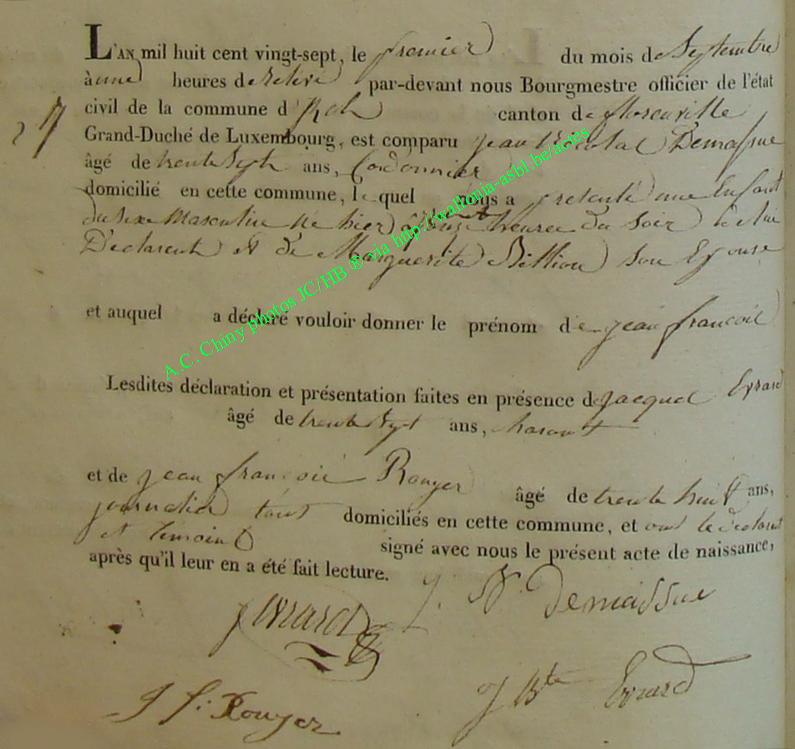 L'AN mil huit cent vingt-sept, le premier du mois de Septembre
à une heures de relevé par-devant nous Bourgmestre officier de l'état
civil de la commune d canton de florenville
Grand-Duché de Luxembourg, est comparu jean Nicolas Demassue
âgé de trente Sept ans, Cordonnier
domicilié en cette commune, lequel nous a présenté une Enfant
du sexe Masculin Né hier à onze heures du soir de lui
Déclarent et de Marguerite Billion son Epouse
et auquel a déclaré vouloir donner le prénom de jean françois
Lesdites déclaration et présentation faites en présence de jacque Evrard
âgé de trente Sept ans,
et de jean françois Rouyer âgé de trente huit ans,
journalier tous domiciliés en cette commune, et ont le déclarent
et témoins signé avec nous le présent acte de naissance,
après qu'il leur en a été fait lecture.
J Evrard J. N. Demassue
J f. Rouyer J Bte Evrard
A.C. Chiny photos JC/HB ® via http://wallonia-asbl.be/actes